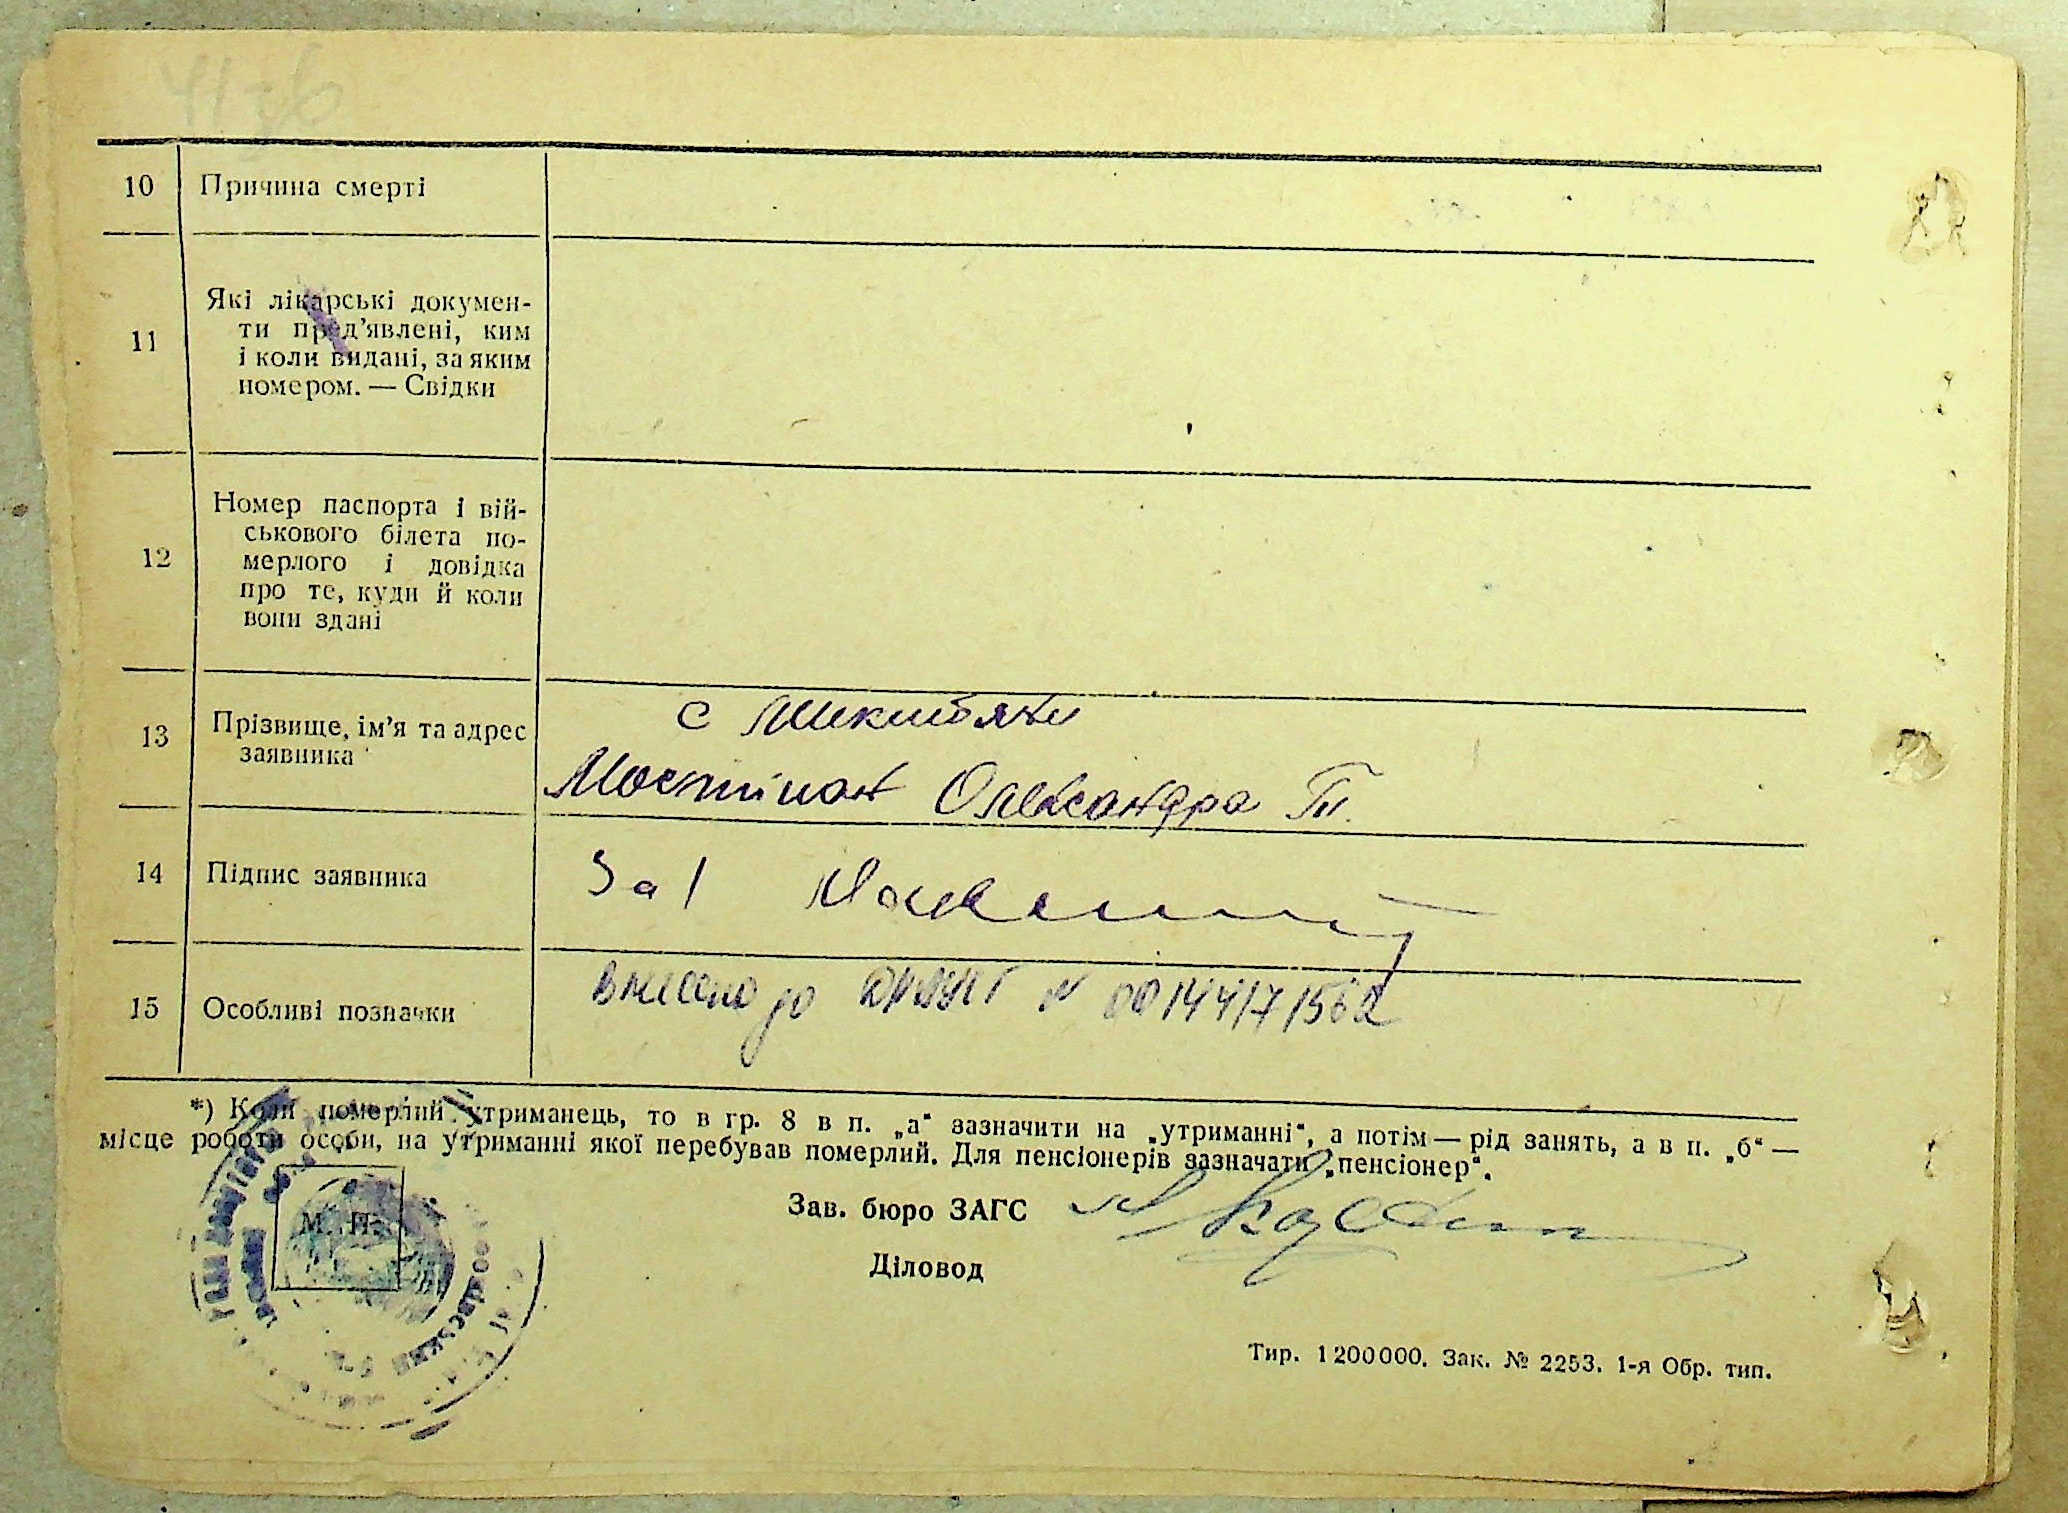 10 Причина смерті
11 Які лікарські докумен-
ти пред’явлені, ким
і коли видані, за яким
номером. — Свідки
12 Номер паспорта і вій-
ськового білета по-
мерлого і довідка
про те, куди й коли
вони здані
с Микитяни
13 Прізвище, ім’я та адрес
заявника
Мостіпан Олександра Т.
14 Підпис заявника За
15 Особливі позначки Внесено до ДРАЦСГ № 00144171562
*) Коли померлий утриманець, то в гр. 8 в п. „а“ зазначити на „утриманні“, а потім — рід занять, а в п. „б“ —
місце роботи особи, на утриманні якої перебував померлий. Для пенсіонерів зазначати „пенсіонер“.
М. П.
Зав. бюро ЗАГС
Діловод
Тир. 1200000. Зак. № 2253. 1-я Обр. тип.